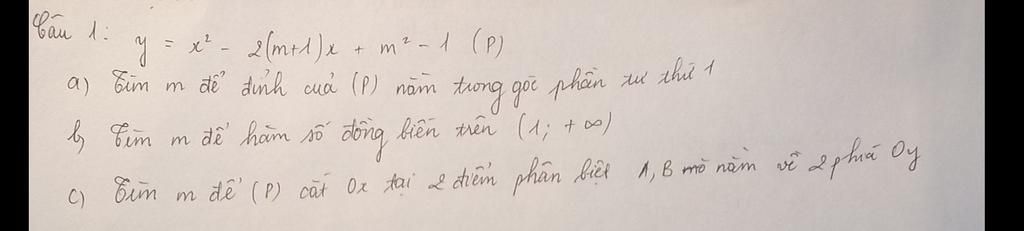 Câu 1: y = x² - 2(m+1)x + m² - 1 (P)
a) Tìm m để đỉnh cuả (P) nằm trong góc phần tư thứ 1
b) Tìm m để hàm số đồng biến trên (1; +∞)
c) Tìm m để (P) cắt Ox tại 2 điểm phân biệt A, B mà nằm về 2 phiá Oy